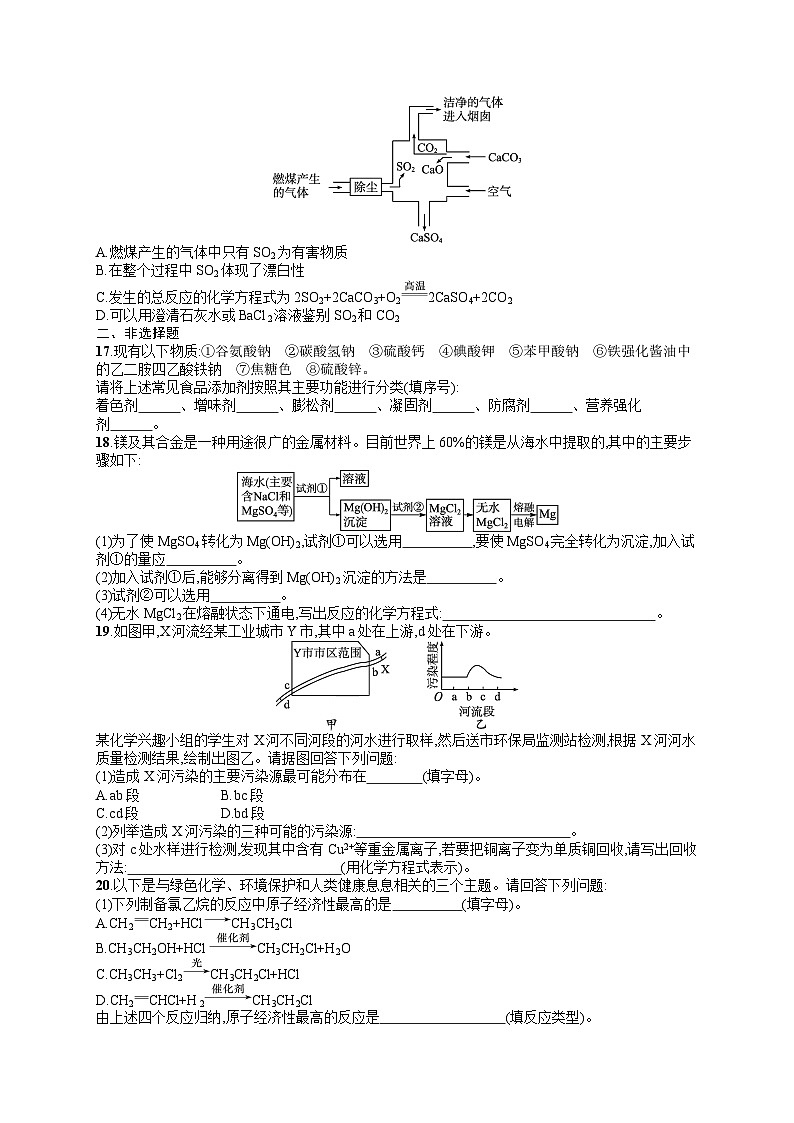 洁净的气体
进入烟囱
CO2
SO2 CaO
CaCO3
燃煤产生
的气体
除尘
空气
CaSO4
A.燃煤产生的气体中只有SO2为有害物质
B.在整个过程中SO2体现了漂白性
C.发生的总反应的化学方程式为2SO2+2CaCO3+O2 高温 2CaSO4+2CO2
D.可以用澄清石灰水或BaCl2溶液鉴别SO2和CO2
二、非选择题
17.现有以下物质:①谷氨酸钠 ②碳酸氢钠 ③硫酸钙 ④碘酸钾 ⑤苯甲酸钠 ⑥铁强化酱油中
的乙二胺四乙酸铁钠 ⑦焦糖色 ⑧硫酸锌。
请将上述常见食品添加剂按照其主要功能进行分类(填序号):
着色剂______、增味剂______、膨松剂______、凝固剂______、防腐剂______、营养强化
剂______。
18.镁及其合金是一种用途很广的金属材料。目前世界上60%的镁是从海水中提取的,其中的主要步
骤如下:
海水(主要
含NaCl和
MgSO4等)
试剂①
溶液
Mg(OH)2
沉淀
试剂②
MgCl2
溶液
无水
MgCl2
熔融
电解
Mg
(1)为了使MgSO4转化为Mg(OH)2,试剂①可以选用__________,要使MgSO4完全转化为沉淀,加入试
剂①的量应__________。
(2)加入试剂①后,能够分离得到Mg(OH)2沉淀的方法是__________。
(3)试剂②可以选用__________。
(4)无水MgCl2在熔融状态下通电,写出反应的化学方程式:______________________________。
19.如图甲,X河流经某工业城市Y市,其中a处在上游,d处在下游。
Y市市区范围
a
b X
c
d
甲
污染程度
O a b c d
河流段
乙
某化学兴趣小组的学生对X河不同河段的河水进行取样,然后送市环保局监测站检测,根据X河河水
质量检测结果,绘制出图乙。请据图回答下列问题:
(1)造成X河污染的主要污染源最可能分布在________(填字母)。
A.ab段 B.bc段
C.cd段 D.bd段
(2)列举造成X河污染的三种可能的污染源:______________________________。
(3)对c处水样进行检测,发现其中含有Cu2+等重金属离子,若要把铜离子变为单质铜回收,请写出回收
方法:______________________________(用化学方程式表示)。
20.以下是与绿色化学、环境保护和人类健康息息相关的三个主题。请回答下列问题:
(1)下列制备氯乙烷的反应中原子经济性最高的是__________(填字母)。
A.CH2═CH2+HCl→CH3CH2Cl
B.CH3CH2OH+HCl 催化剂→CH3CH2Cl+H2O
C.CH3CH3+Cl2 光→CH3CH2Cl+HCl
D.CH2═CHCl+H2 催化剂→CH3CH2Cl
由上述四个反应归纳,原子经济性最高的反应是__________________(填反应类型)。